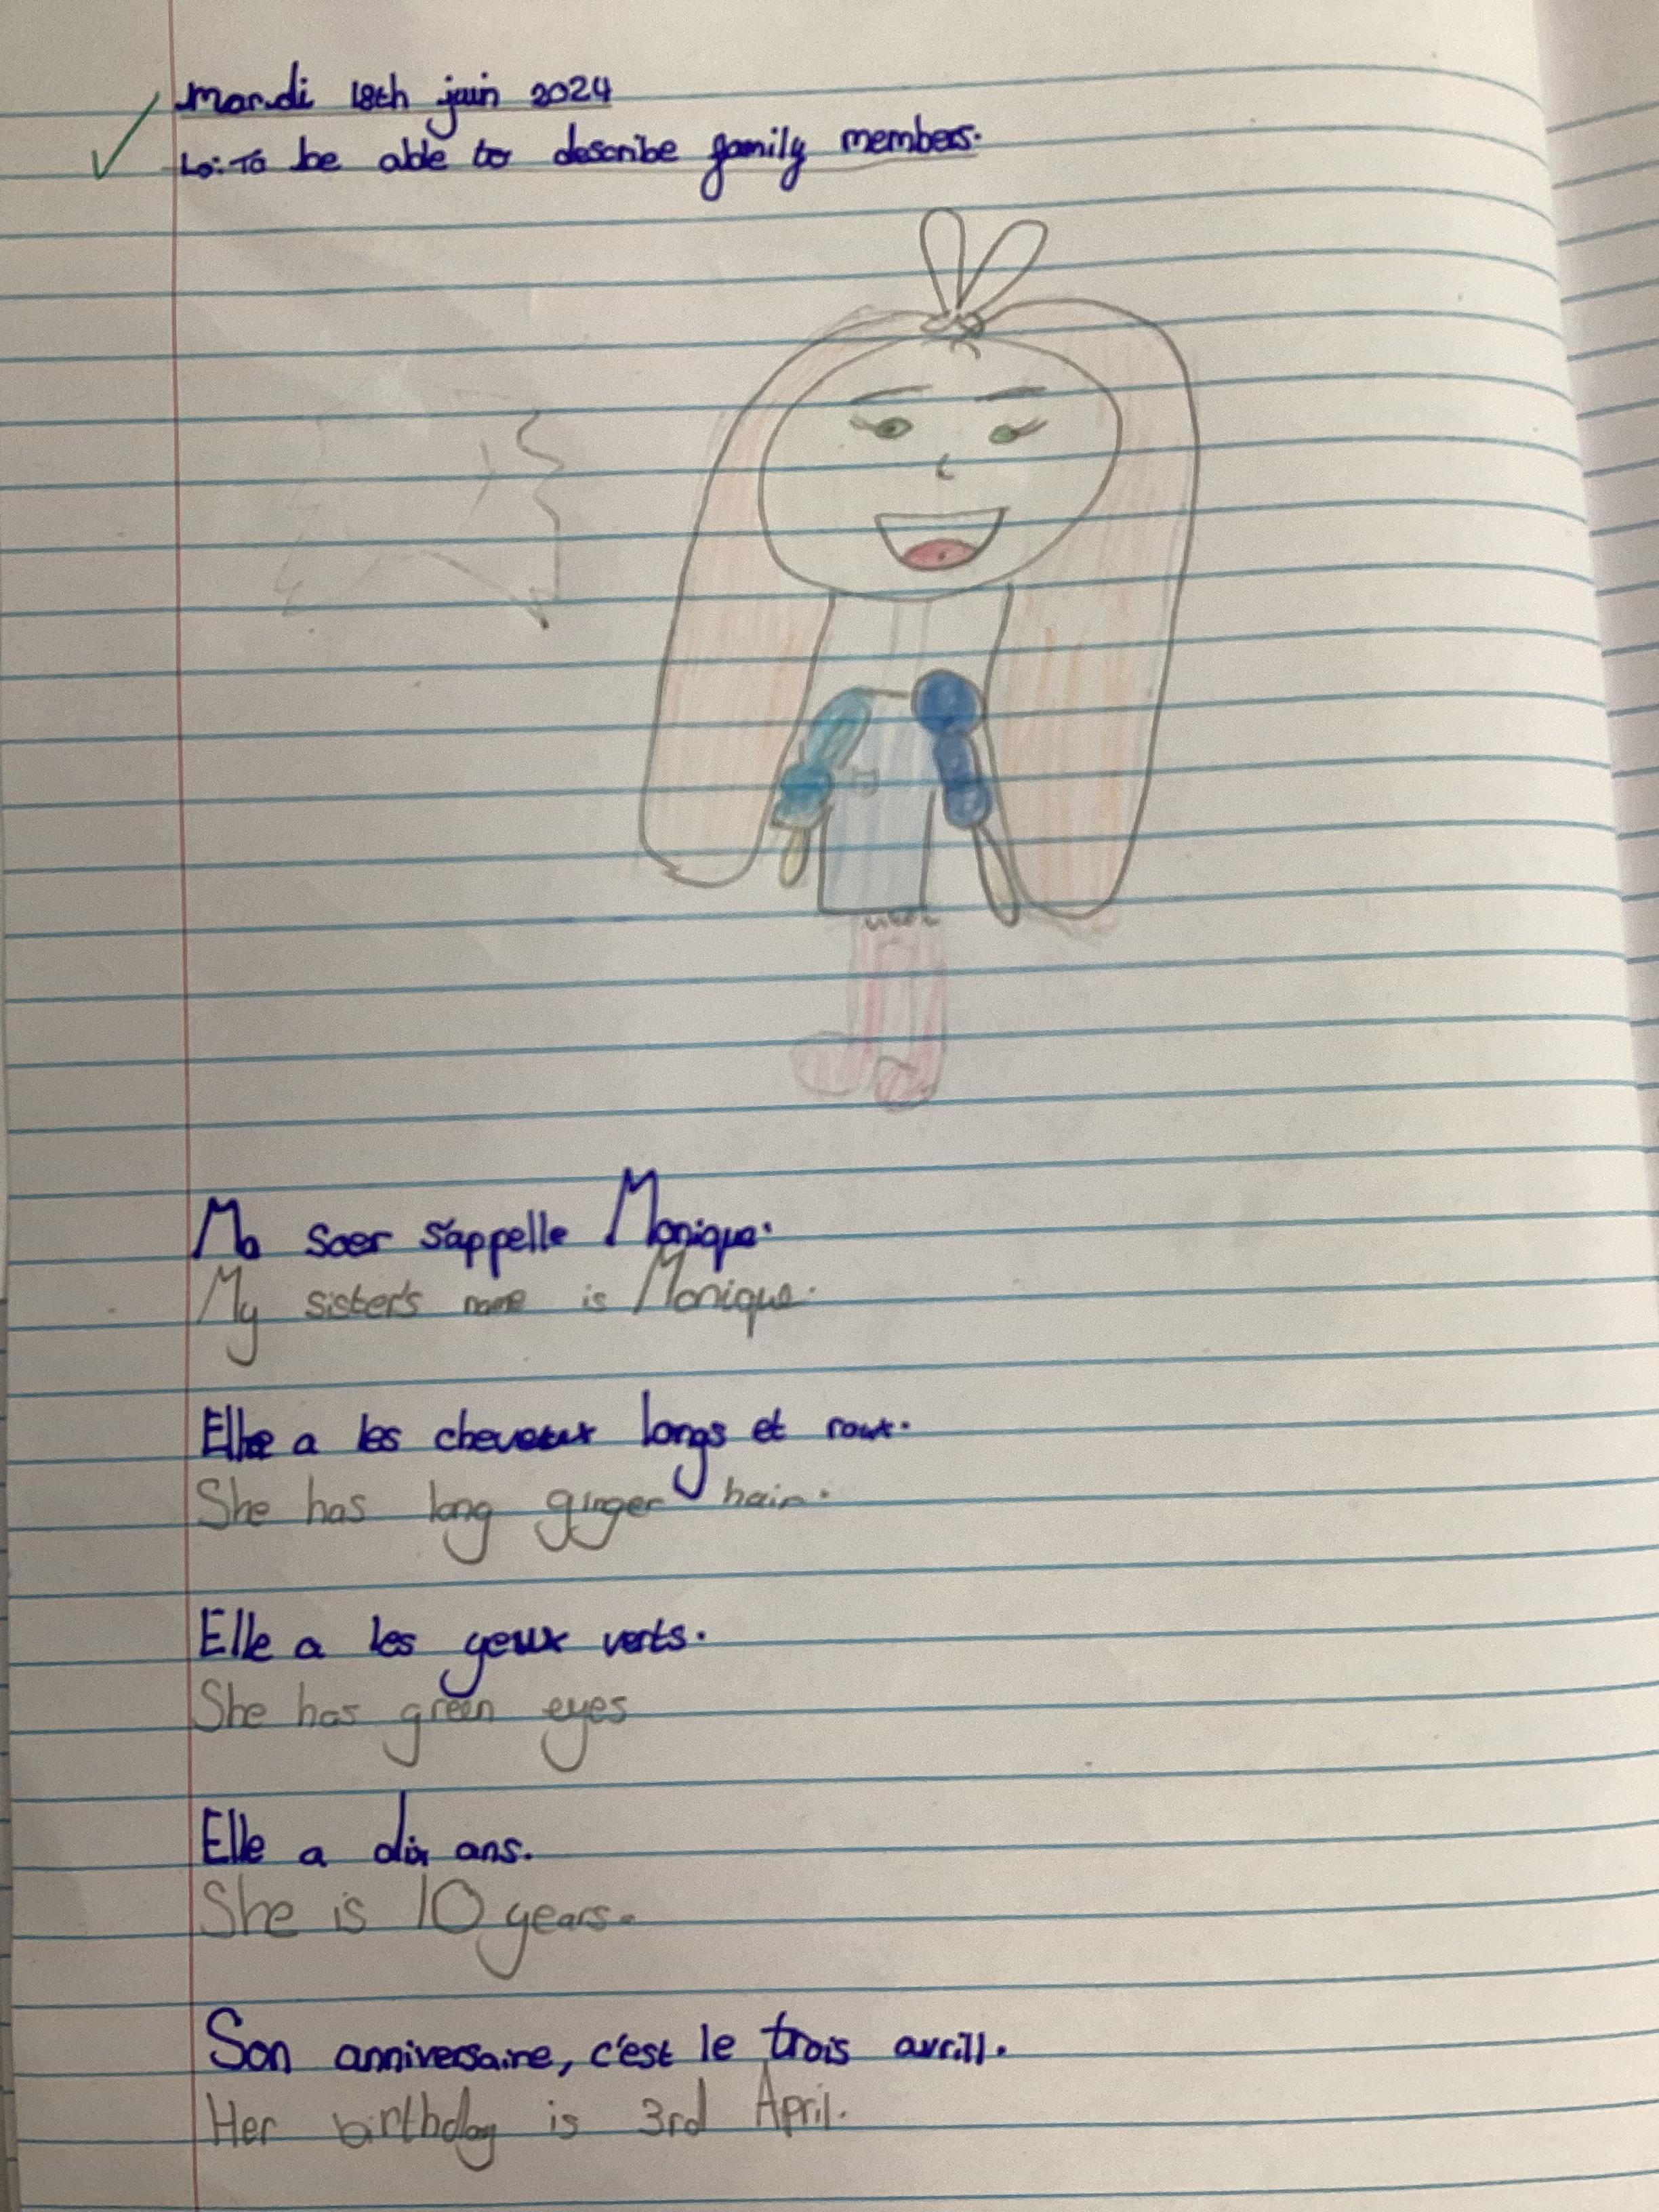 Mardi 18th juin 2024
Lo: To be able to describe family members.
Ma soer s'appelle Monique.
My sister's name is Monique.
Elle a les cheveux longs et roux.
She has long ginger hair.
Elle a les yeux verts.
She has green eyes
Elle a dix ans.
She is 10 years.
Son anniversaire, c'est le trois avrill.
Her birthday is 3rd April.